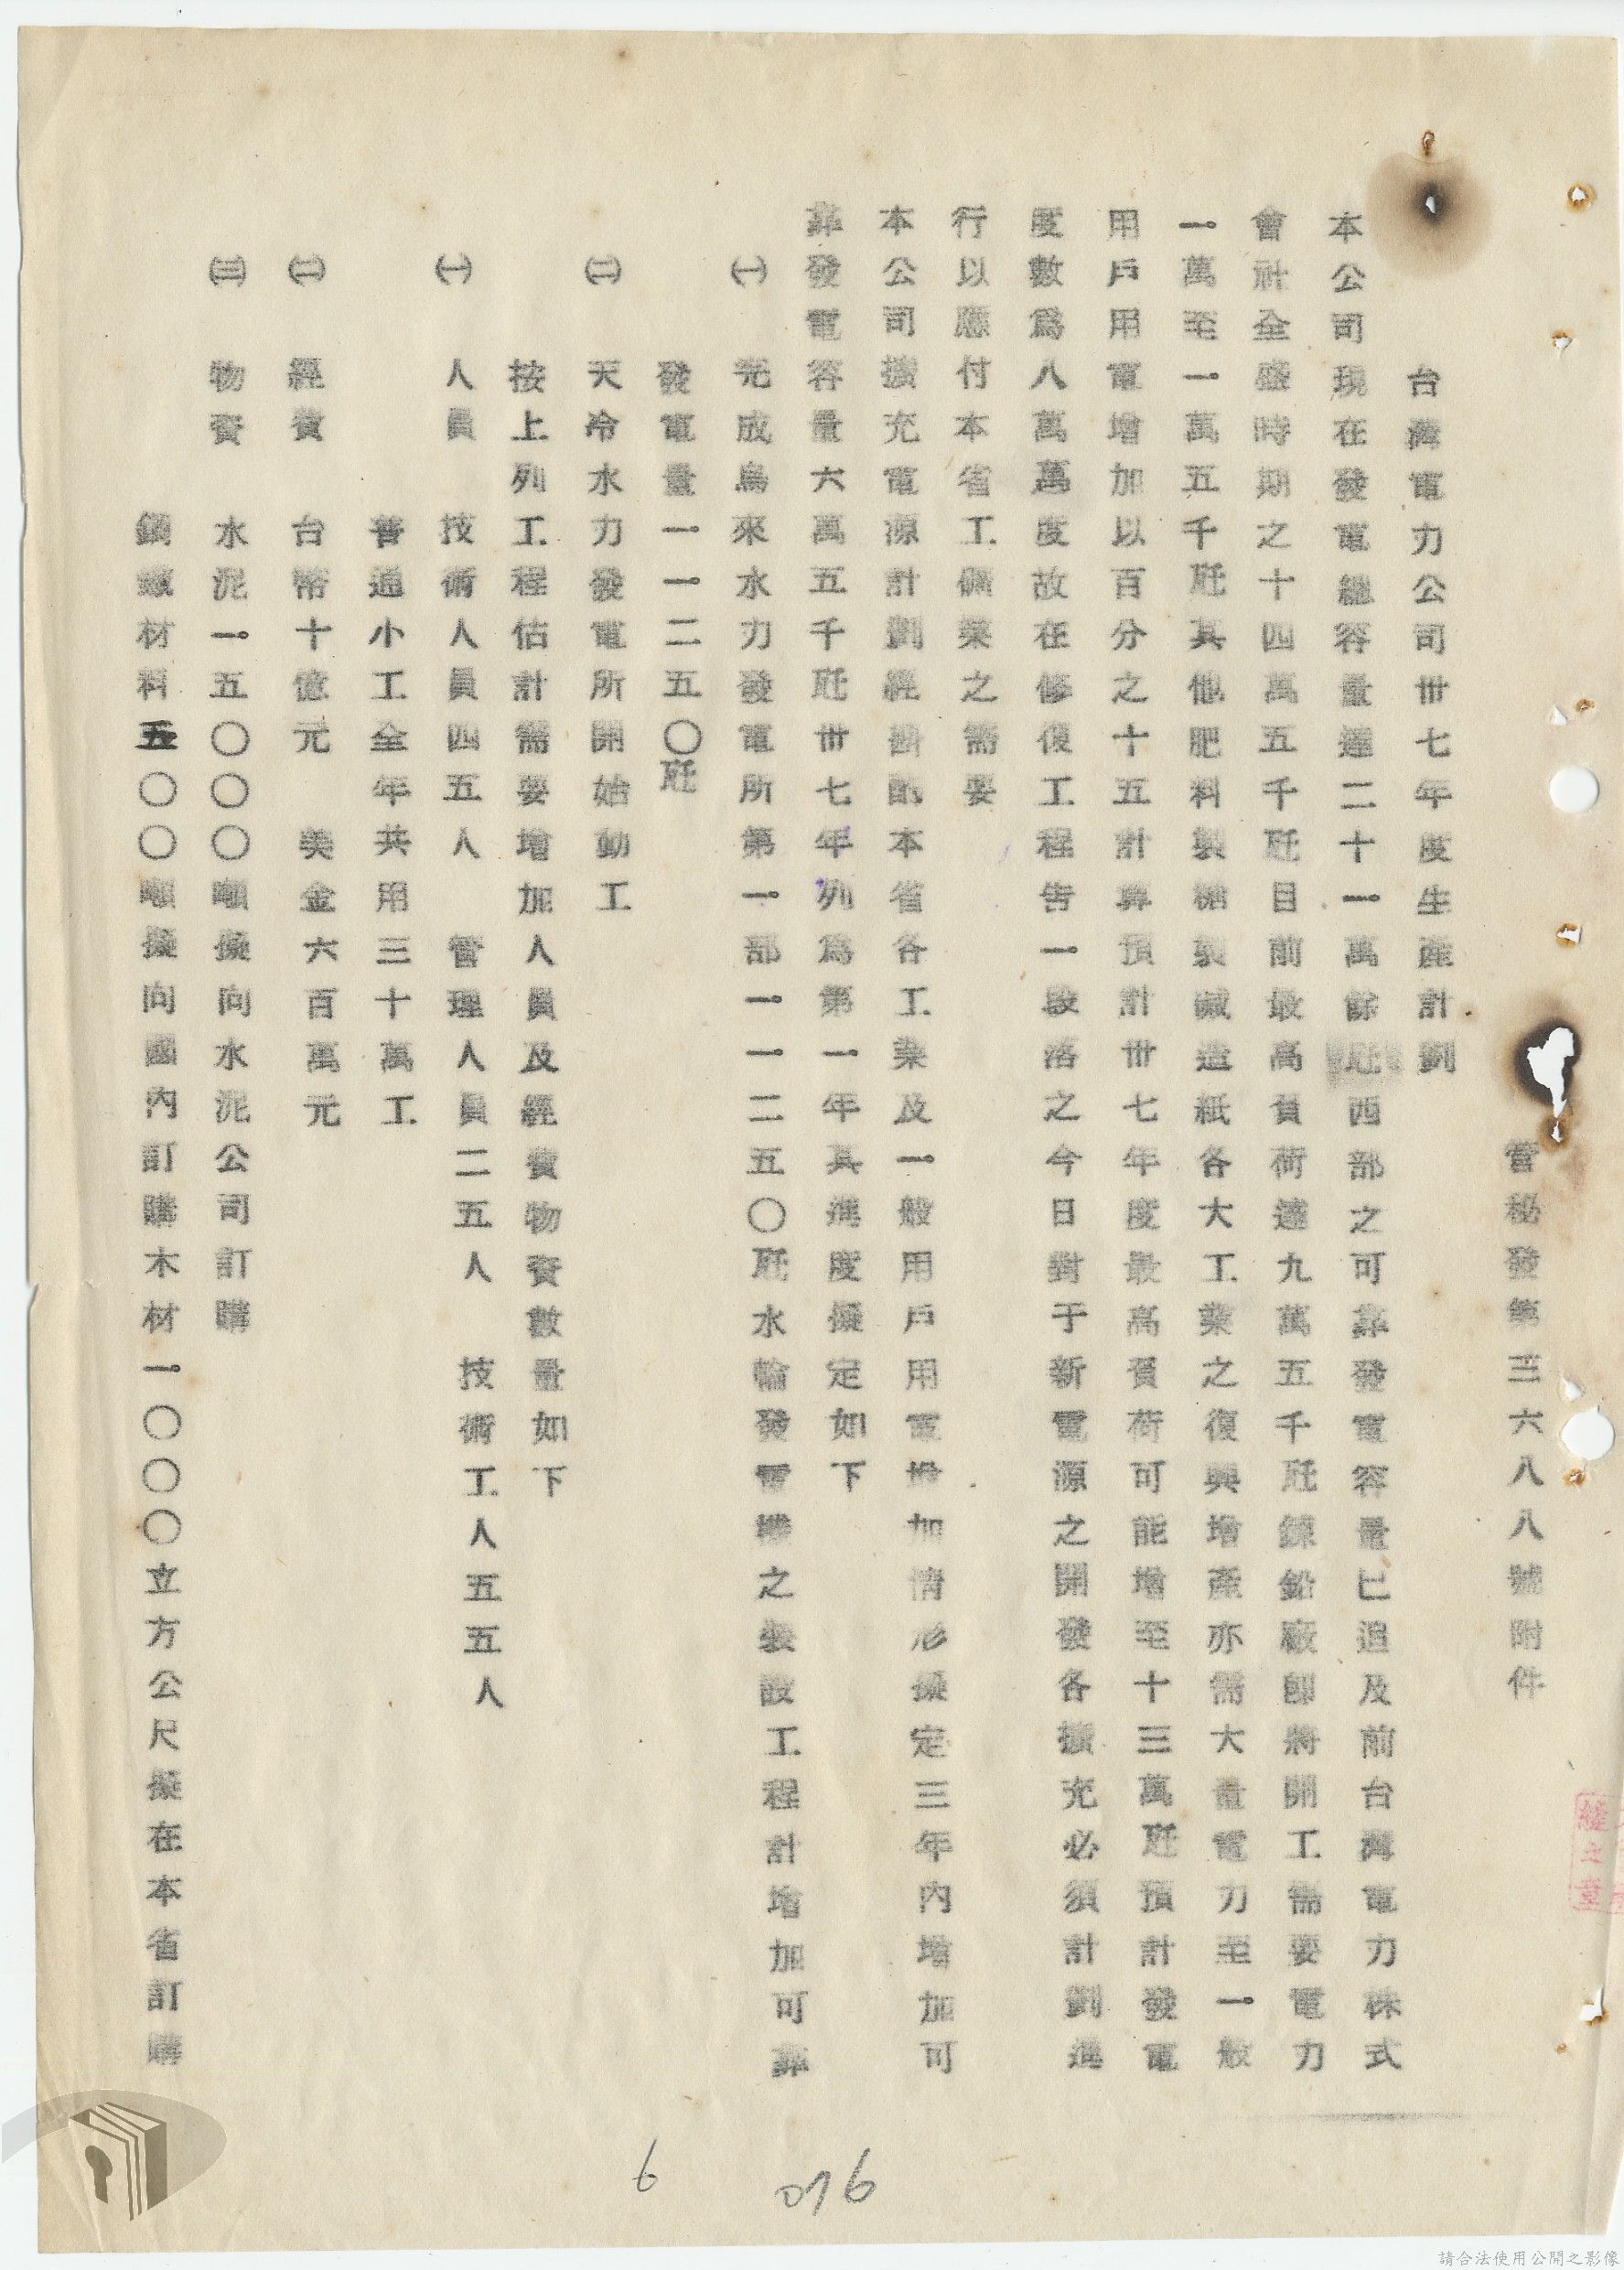 營秘發第三六八八號附件
台灣電力公司卅七年度生產計劃
本公司現在發電總容量達二十一萬餘瓩西部之可靠發電容量已追及前台灣電力株式
會社全盛時期之十四萬五千瓩目前最高負荷達九萬五千瓩鍊鋁廠卽將開工需要電力
一萬至一萬五千瓩其他肥料製糖製鹼造紙各大工業之復興增產亦需大量電力至一般
用戶用電增加以百分之十五計算預計卅七年度最高負荷可能增至十三萬瓩預計發電
度數爲八萬萬度故在修復工程告一段落之今日對于新電源之開發各擴充必須計劃進
行以應付本省工礦業之需要
本公司擴充電源計劃經斟酌本省各工業及一般用戶用電增加情形擬定三年內增加可
靠發電容量六萬五千瓩卅七年列爲第一年其進度擬定如下
㈠ 完成烏來水力發電所第一部一一二五〇瓩水輪發電機之裝設工程計增加可靠
發電量一一二五〇瓩
㈡ 天冷水力發電所開始動工
按上列工程估計需要增加人員及經費物資數量如下
㈠ 人員 技術人員四五人 管理人員二五人 技術工人五五人
普通小工全年共用三十萬工
㈡ 經費 台幣十億元 美金六百萬元
㈢ 物資 水泥一五〇〇〇噸擬向水泥公司訂購
鋼鐵材料五〇〇噸擬向國內訂購木材一〇〇〇立方公尺擬在本省訂購
6 016
請合法使用公開之影像